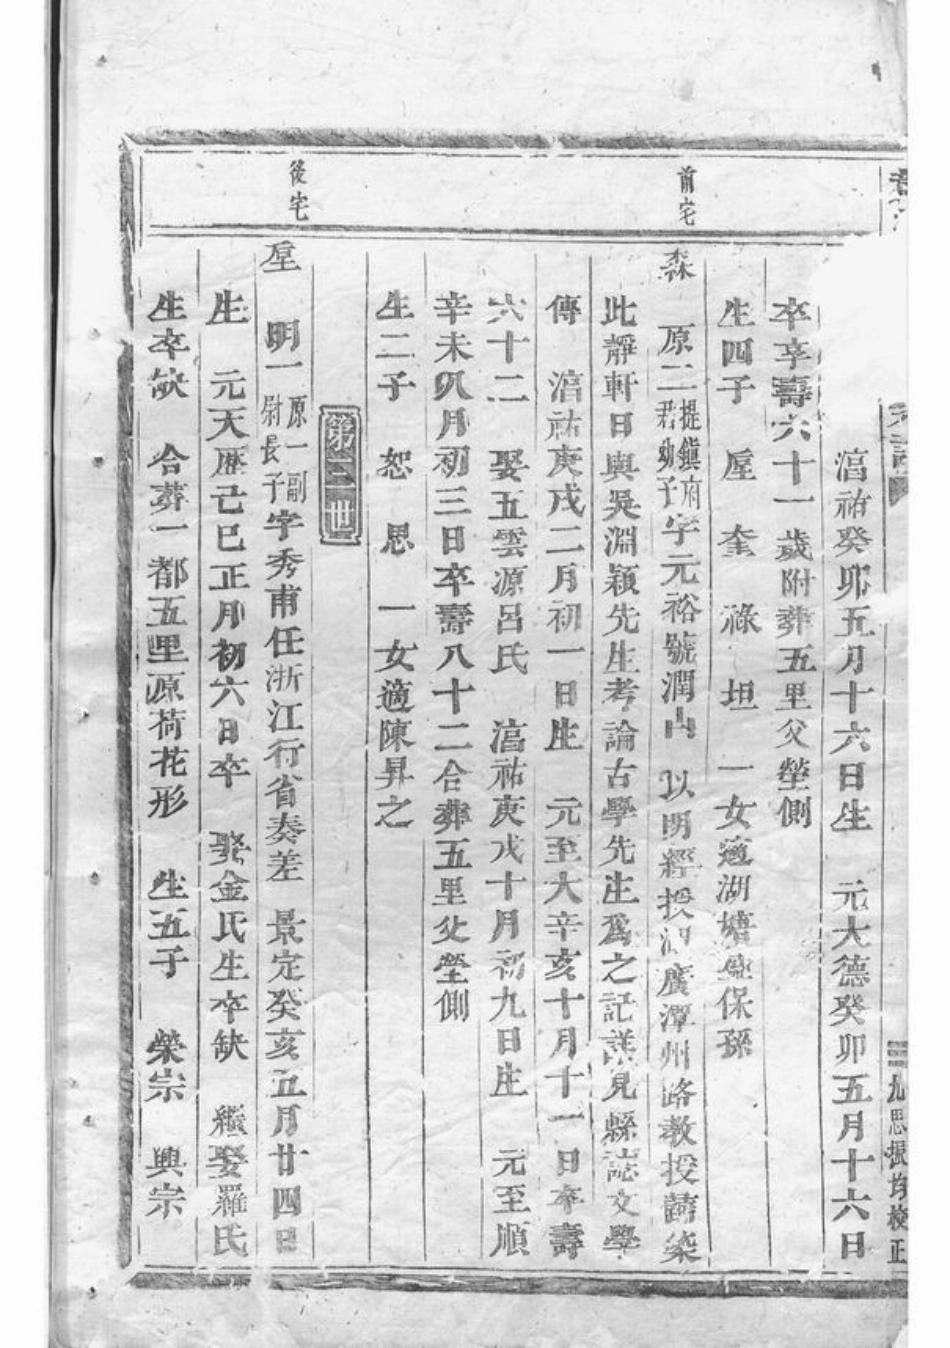 淯祐癸卯五月十六日生　元大德癸卯五月十六日
卒享壽六十一歲附葬五里父塋側
生四子　垕　奎　祿　坦　一女適湖塘　保孫
前宅
森　原二提鎮府君幼子字元裕號潤山　以明經授湖廣潭州路教授請築
此靜軒日與吳淵穎先生考論古學先生爲之記詳見縣誌文學
傳　淯祐庚戌二月初一日生　元至大辛亥十月十一日卒壽
六十二　娶五雲源呂氏　淯祐庚戌十月初九日生　元至順
辛未八月初三日卒壽八十二合葬五里父塋側
生二子　恕　思　一女適陳昇之
第三世
後宅
垕　明一原一副尉長子字秀甫任浙江行省奏差　景定癸亥五月廿四日
生　元天歷己巳正月初六日卒　娶金氏生卒缺　繼娶羅氏
生卒缺　合葬一都五里原荷花形　生五子　榮宗　興宗
九思振均校正